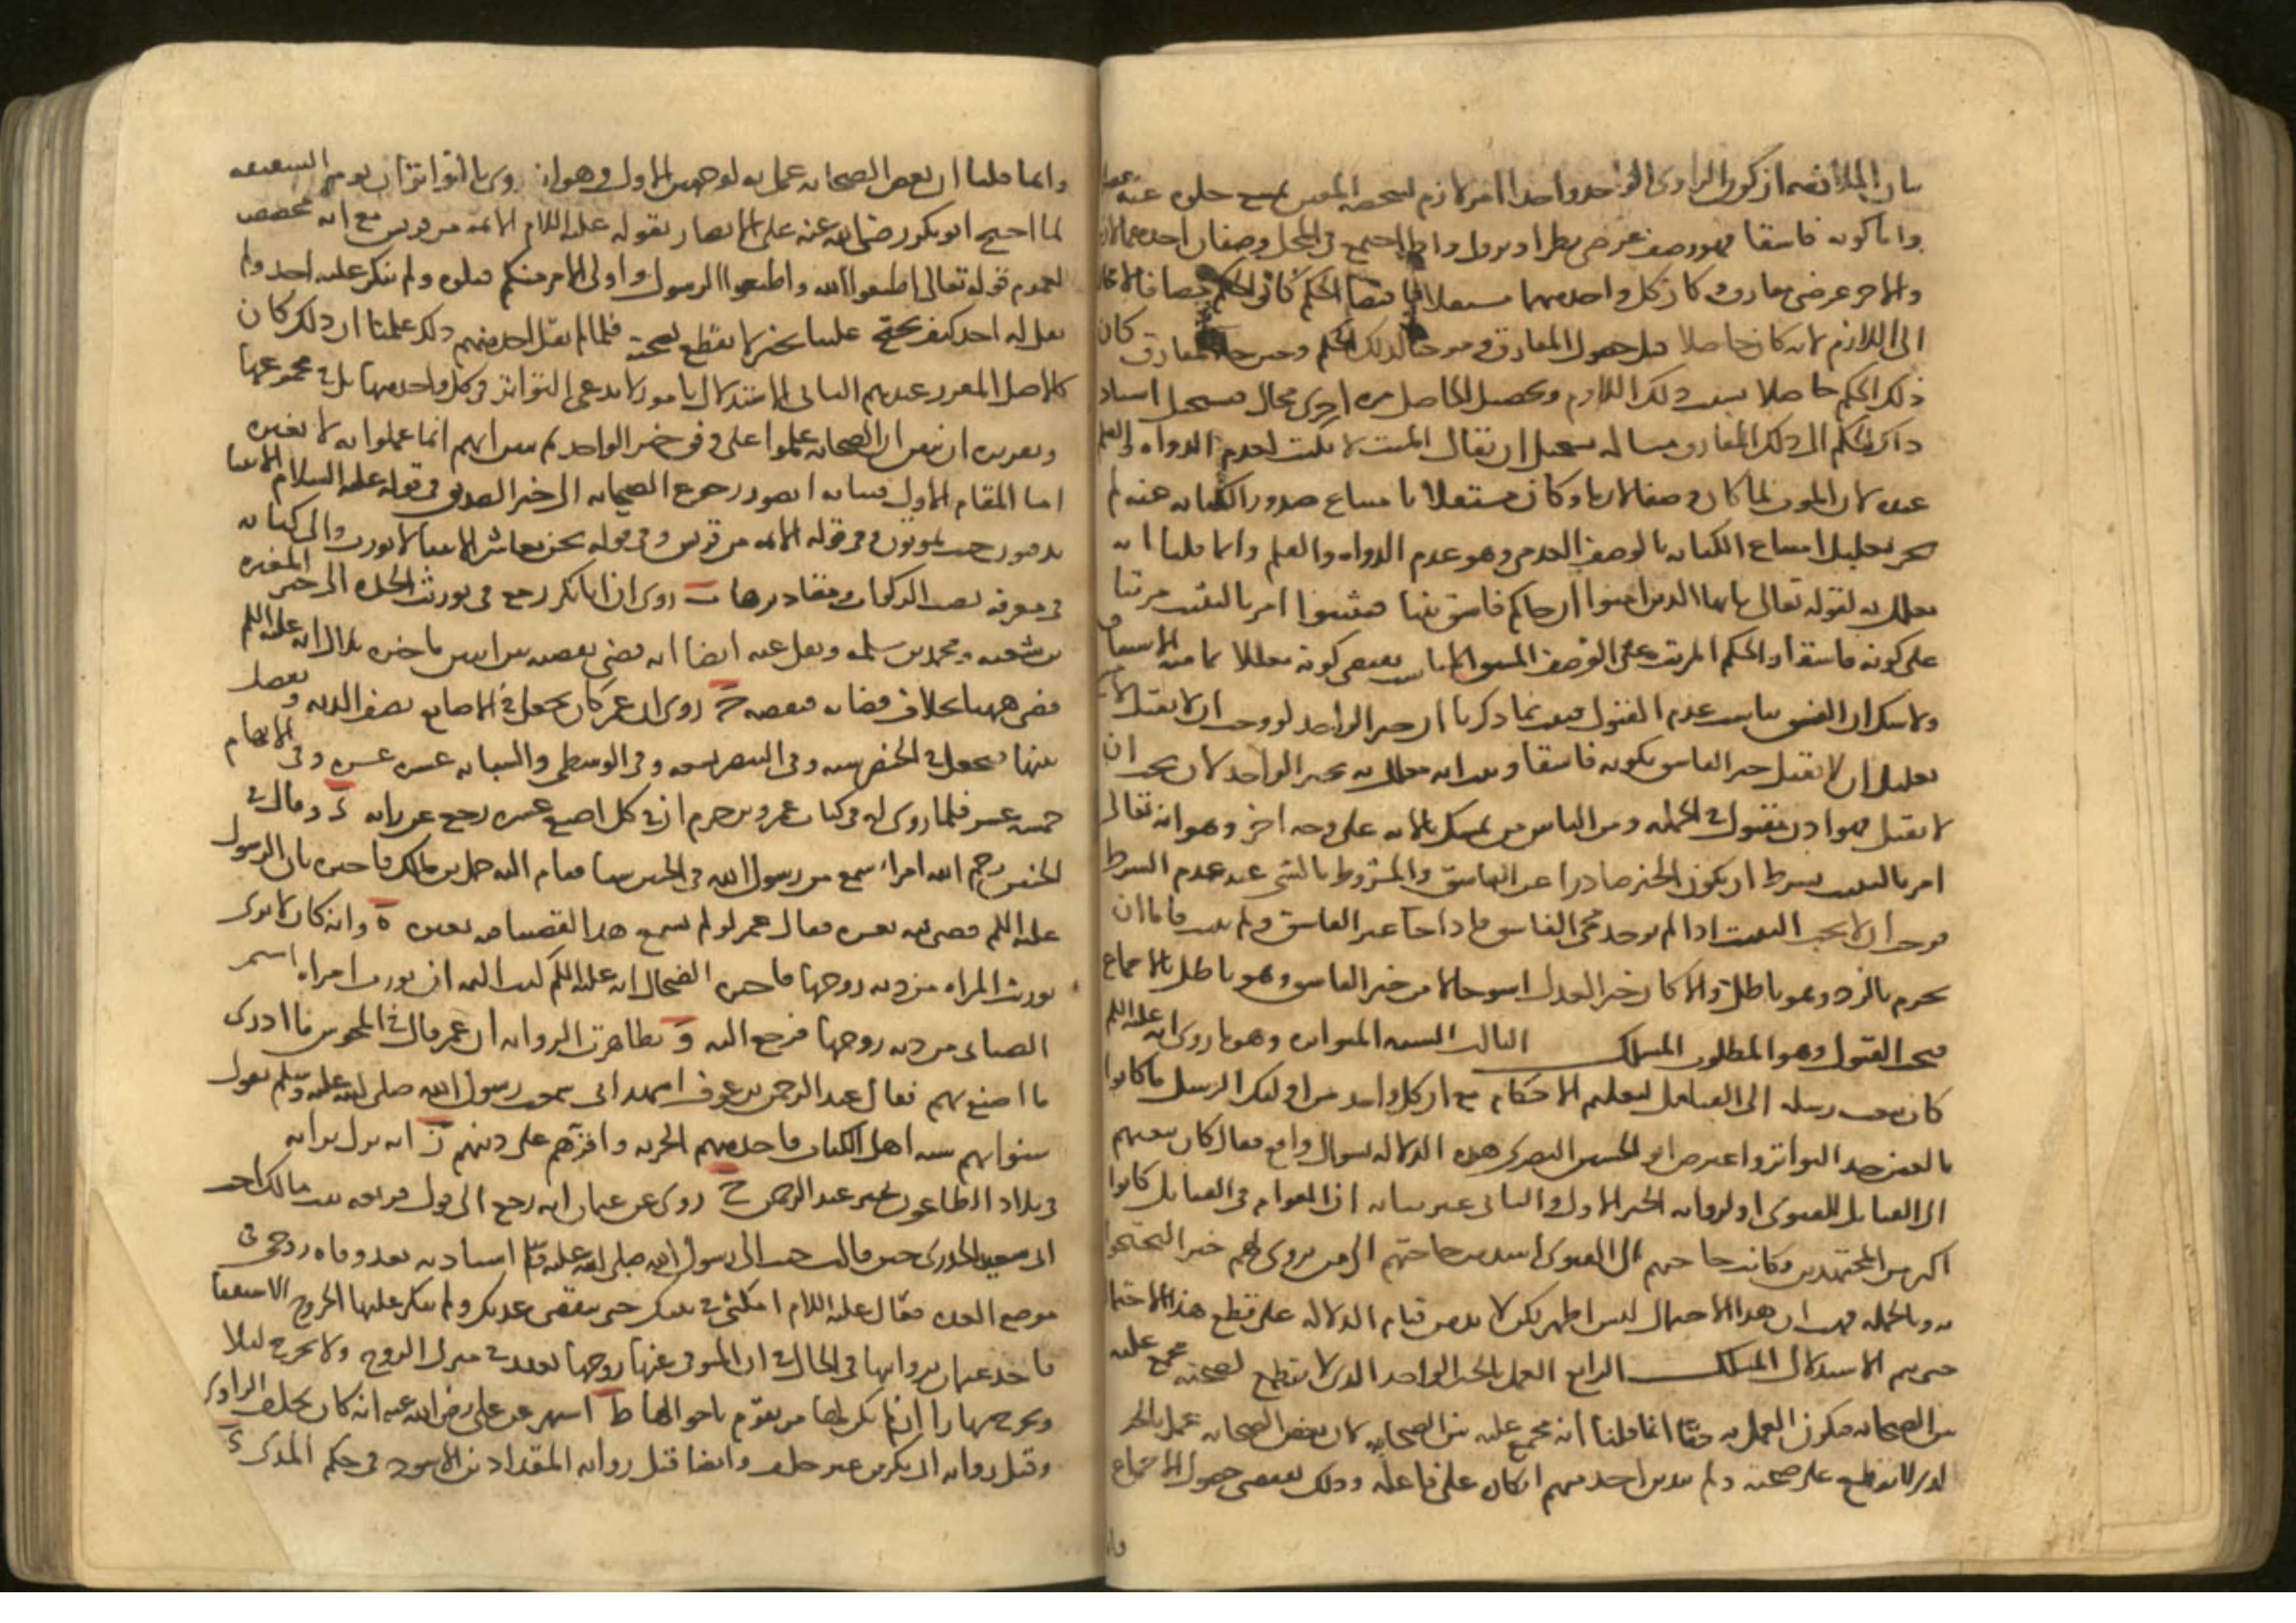 بيان الملازمة ان كون الراوى الواحد واحدا امر لازم لشخصه المعين يمتنع خلوه عنه عقلا
واما كونه فاسقا فهو وصف عرضى يطرا ويزول واذا اجتمع فى المحل وصفان احدهما لازم
والاخر عرضى مفارق وكان كل واحد منهما مستقلا باقتضا الحكم كان الحكم مضافا لا محالة
الى اللازم لانه كان حاصلا قبل حصول المفارق وموجبا لذلك الحكم وحين جا المفارق كان
ذلك الحكم حاصلا بسبب ذلك اللازم وتحصيل الحاصل مره اخرى محال فيستحيل اسناد
ذلك الحكم الى ذلك المفارق مثاله يستحيل ان يقال الميت لا يكتب لعدم الدواه والقلم
عنده لان الموت لما كان وصفا لازما وكان مستقلا بامتناع صدور الكتابه عنه لم
يجز تعليل امتناع الكتابه بالوصف العدمى وهو عدم الدواه والقلم وانما قلنا انه
معلل به لقوله تعالى يايها الذين امنوا ان جاكم فاسق بنبا فتبينوا امر بالتثبت مرتبا
على كونه فاسقا والحكم المرتب على الوصف المشتق المناسب يقتضى كونه معللا بما منه الاشتقاق
ولا شك ان الفسق يناسب عدم القبول فثبت بما ذكرنا ان خبر الواحد لو وجب ان لا يقبل لامتنع
تعليل ان لا يقبل خبر الفاسق بكونه فاسقا وثبت انه معلل به فخبر الواحد لا يجب ان
لا يقبل فهو اذن مقبول فى الجمله ومن الناس من تمسك بالايه على وجه اخر وهو انه تعالى
امر بالتثبت بشرط ان يكون الخبر صادرا عن الفاسق والمشروط بالشى عند عدم الشرط
فوجب ان لا يجب التثبت اذا لم يوجد مجى الفاسق فاذا جا غير الفاسق ولم نتثبت فاما ان
نجزم بالرد وهو باطل والا كان خبر العدل اسوا حالا من خبر الفاسق وهو باطل بالاجماع
فيجب القبول وهو المطلوب المسلك الثالث السنه المتواتره وهو ما روى انه عليه السلم
كان يبعث رسله الى القبايل لتعليم الاحكام مع ان كل واحد من اولئك الرسل ما كانوا
بالغين حد التواتر واعترض ابو الحسين البصرى هذه الدلاله بسوال واقع فقال كان يبعثهم
الى القبايل للفتوى او لروايه الخبر الاول والثانى غير بيانه ان العوام فى القبايل كانوا
اكثر من المجتهدين وكانت حاجتهم الى الفتوى اشد من حاجتهم الى من يروى لهم خبرا ليحتجوا
به وبالجمله فهب ان هذا الاحتمال ليس اظهر لكن لا بد من قيام الدلاله على قطع هذا الاحتمال
حتى يتم الاستدلال المسلك الرابع العمل بالخبر الواحد الذى لا يقطع بصحته مجمع عليه
بين الصحابه فيكون العمل به حقا انما قلنا انه مجمع عليه بين الصحابه لان بعض الصحابه عمل بالخبر
الذى لا يقطع على صحته ولم يبد من احد منهم انكار على فاعله وذلك يقتضى حصول الاجماع
وانما قلنا ان بعض الصحابه عمل به لوجهين الاول وهو انه روى بالتواتر ان يوم السقيفه
لما احتج ابو بكر رضى الله عنه على الانصار بقوله عليه السلام الايمه من قريش مع انه مخصص
لعموم قوله تعالى اطيعوا الله واطيعوا الرسول واولى الامر منكم قبلوه ولم ينكر عليه احد ولم
يقل له احد كيف تحتج علينا بخبر لا نقطع بصحته فلما لم يقل احد منهم ذلك علمنا ان ذلك كان
كالاصل المقرر عندهم الثانى الاستدلال بامور لا ندعى التواتر فى كل واحد منها بل فى مجموعها
وتقريره ان نبين ان الصحابه عملوا على وفق خبر الواحد ثم نبين انهم انما عملوا به لا بغيره
اما المقام الاول فبيانه بصور رجوع الصحابه الى خبر الصديق فى قوله عليه السلام الانبيا
يدفنون حيث يموتون وفى قوله الايمه من قريش وفى قوله نحن معاشر الانبيا لا نورث والى كتابه
فى معرفه نصب الزكوات ومقاديرها ب روى ان ابا بكر رجع فى توريث الجده الى خبر المغيره
بن شعبه ومحمد بن سلمه ونقل عنه ايضا انه قضى بقضيه بين اثنين فاخبره بلال انه عليه السلم
قضى فيها بخلاف قضايه فنقضه ج روى ان عمر كان يجعل فى الاصابع نصف الديه ويفصل
بينها فيجعل فى الخنصر سته وفى البنصر تسعه وفى الوسطى والسبابه عشره عشره وفى الابهام
خمسه عشر فلما روى له فى كتاب عمرو بن حزم ان فى كل اصبع عشره رجع عن رايه د وقال فى
الجنين رحم الله امرا سمع من رسول الله فى الجنين شيا فقام اليه حمل بن مالك فاخبره بان الرسول
عليه السلم قضى فيه بغره فقال عمر لو لم نسمع هذا لقضينا فيه بغيره ه وانه كان لا يرى
توريث المراه من ديه زوجها فاخبره الضحاك انه عليه السلم كتب اليه ان يورث امراه اشيم
الضبابى من ديه زوجها فرجع اليه و تظاهرت الروايه ان عمر قال فى المجوس ما ادرى
ما اصنع بهم فقال عبد الرحمن بن عوف اشهد انى سمعت رسول الله صلى الله عليه وسلم يقول
سنوا بهم سنه اهل الكتاب فاخذ منهم الجزيه واقرهم على دينهم ز انه ترك رايه
فى بلاد الطاعون بخبر عبد الرحمن ح روى عن عثمان انه رجع الى قول فريعه بنت مالك اخت
ابى سعيد الخدرى حين قالت جيت الى رسول الله صلى الله عليه استاذنه بعد وفاه زوجى فى
موضع العده فقال عليه السلام امكثى فى بيتك حتى تنقضى عدتك ولم ينكر عليها الخروج للاستفتا
فاخذ عثمان بروايتها فى الحال فى ان المتوفى عنها زوجها تعتد فى منزل الزوج ولا تخرج ليلا
وتخرج نهارا ان لم يكن لها من يقوم باحوالها ط اشتهر عن على رضى الله عنه انه كان يحلف الراوى
وقبل روايه ابى بكر من غير حلف وايضا قبل روايه المقداد بن الاسود فى حكم المذى ى